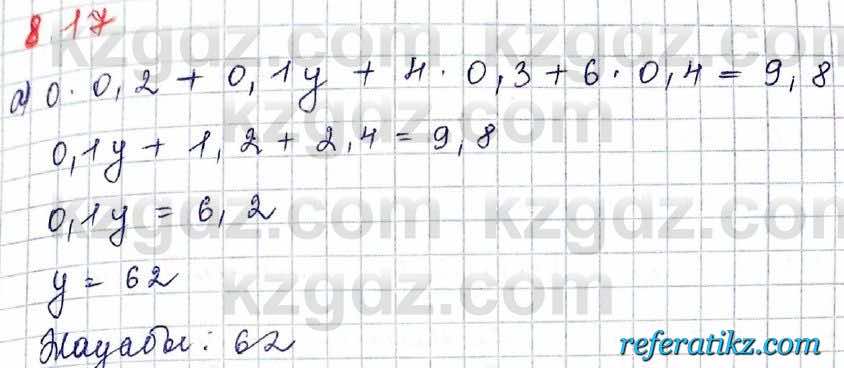 8.17
kzgdz.com kzgdz.com
а) 0 · 0,2 + 0,1y + 4 · 0,3 + 6 · 0,4 = 9,8
kzgdz.com
0,1y + 1,2 + 2,4 = 9,8
0,1y = 6,2
kzgdz.com kzgdz.com
y = 62
kzgdz.com
Жауабы: 62
referatikz.com